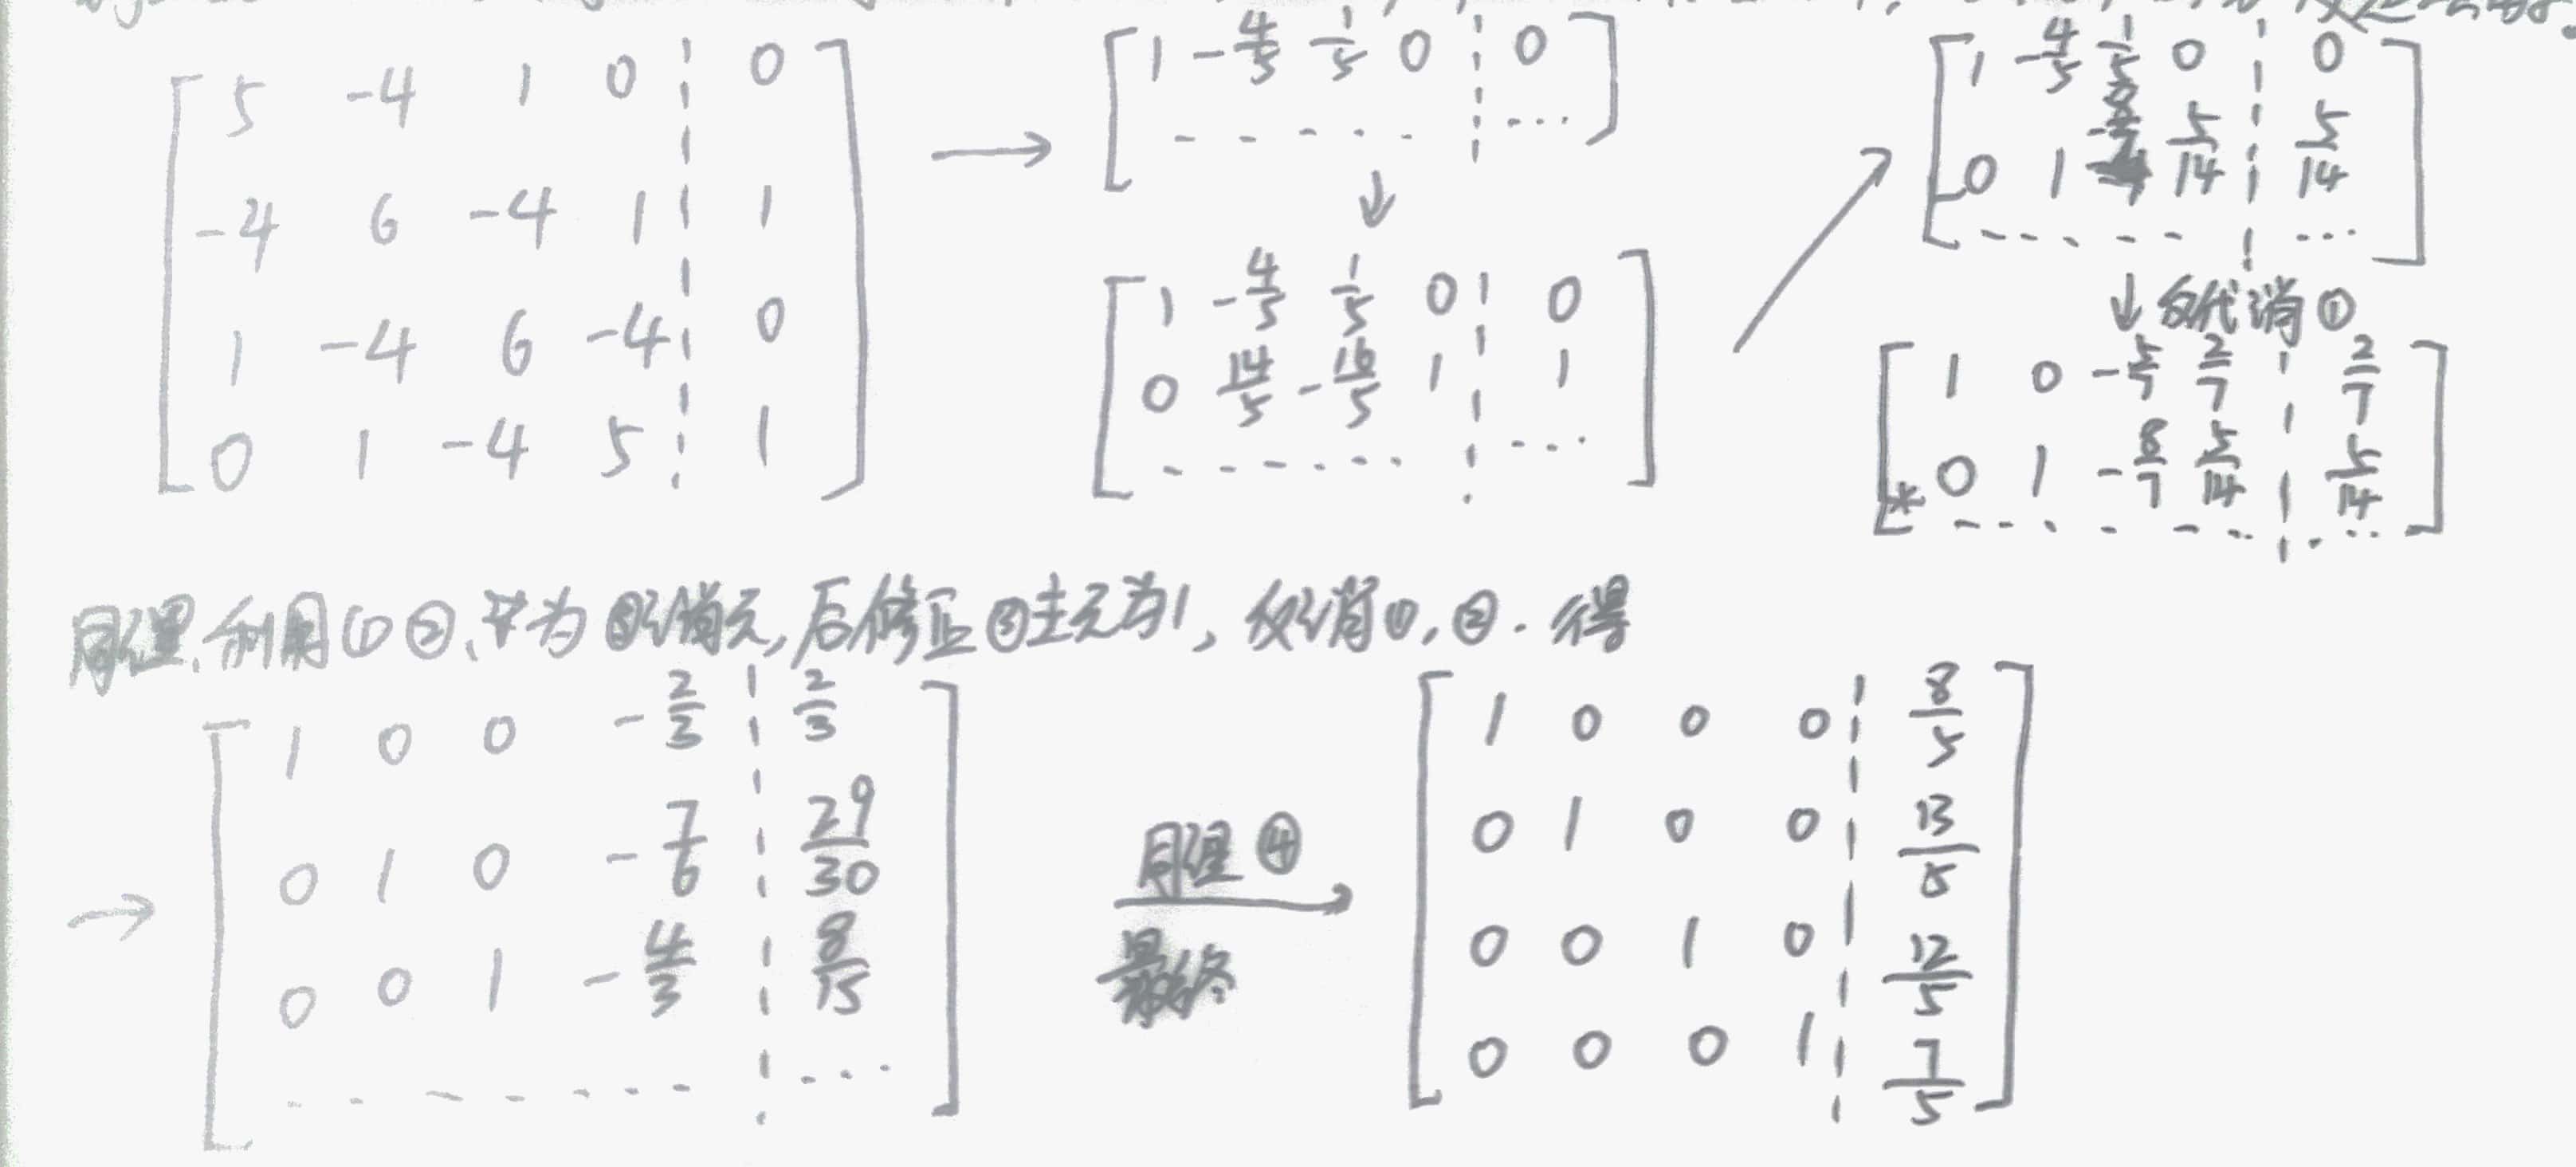 [ 5 -4 1 0 ¦ 0 ]
[ -4 6 -4 1 ¦ 1 ]
[ 1 -4 6 -4 ¦ 0 ]
[ 0 1 -4 5 ¦ 1 ]
→
[ 1 -4/5 1/5 0 ¦ 0 ]
[ - - - - - ¦ ... ]
↓
[ 1 -4/5 1/5 0 ¦ 0 ]
[ 0 14/5 -16/5 1 ¦ 1 ]
[ - - - - - - ¦ ... ]
↗
[ 1 -4/5 1/5 0 ¦ 0 ]
[ 0 1 -8/7 5/14 ¦ 5/14 ]
[ - - - - - - ¦ ... ]
↓ 反代消①
[ 1 0 -5/7 2/7 ¦ 2/7 ]
[ * 0 1 -8/7 5/14 ¦ 5/14 ]
[ - - - - - - ¦ ... ]
同理,利用①②,为③消元,后修正③主元为1,反消①,②.得
→
[ 1 0 0 -2/3 ¦ 2/3 ]
[ 0 1 0 -7/6 ¦ 29/30 ]
[ 0 0 1 -4/3 ¦ 8/15 ]
[ - - - - - - - ¦ ... ]
同理④
→
最终
[ 1 0 0 0 ¦ 8/5 ]
[ 0 1 0 0 ¦ 13/5 ]
[ 0 0 1 0 ¦ 12/5 ]
[ 0 0 0 1 ¦ 7/5 ]